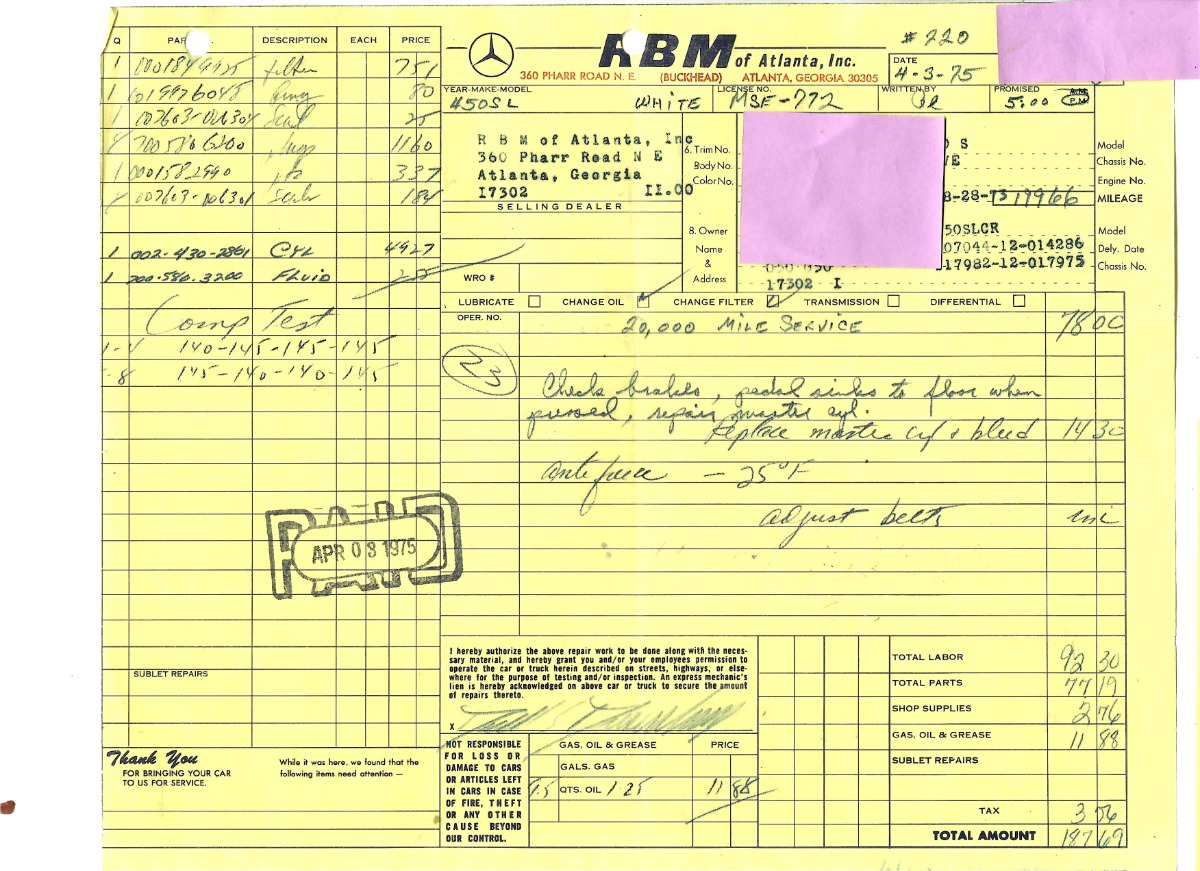 RBM of Atlanta, Inc.
# 220
360 PHARR ROAD N. E. (BUCKHEAD) ATLANTA, GEORGIA 30305
DATE
4-3-75
YEAR-MAKE-MODEL
450SL WHITE
LICENSE NO.
MSE-772
WRITTEN BY
PROMISED
5:00 P.M.
Q PAR DESCRIPTION EACH PRICE
1 0001844425 filter 751
1 Ring 80
1 Seal 25
8 plugs 1160
1 0001582990 337
Seal 184
1 002-430-2801 CYL 4927
1 200.580.3200 FLUID 255
Comp Test
1-4 140-145-145-145
-8 145-140-140-145
PAID
APR 03 1975
SUBLET REPAIRS
Thank You
FOR BRINGING YOUR CAR
TO US FOR SERVICE.
While it was here, we found that the
following items need attention —
R B M of Atlanta, Inc
360 Pharr Road N E
Atlanta, Georgia
17302 II.00
SELLING DEALER
WRO #
6. Trim No.
Body No.
Color No.
8. Owner
Name
&
Address
S
VE
8-28-73 19966
50SLCR
07044-12-014286
17982-12-017975
050-050
17302 I
Model
Chassis No.
Engine No.
MILEAGE
Model
Defy. Date
Chassis No.
LUBRICATE CHANGE OIL CHANGE FILTER TRANSMISSION DIFFERENTIAL
OPER. NO.
20,000 MILE SERVICE 78 00
23
Check brakes, pedal sinks to floor when
pressed, repair master cyl.
Replace master cyl & bleed 14 30
Antifreeze — -25°F
adjust belts n/c
I hereby authorize the above repair work to be done along with the neces-
sary material, and hereby grant you and/or your employees permission to
operate the car or truck herein described on streets, highways, or else-
where for the purpose of testing and/or inspection. An express mechanic's
lien is hereby acknowledged on above car or truck to secure the amount
of repairs thereto.
X
NOT RESPONSIBLE
FOR LOSS OR
DAMAGE TO CARS
OR ARTICLES LEFT
IN CARS IN CASE
OF FIRE, THEFT
OR ANY OTHER
CAUSE BEYOND
OUR CONTROL.
GAS, OIL & GREASE PRICE
GALS. GAS
9.5 QTS. OIL 1.25 11 88
TOTAL LABOR 92 30
TOTAL PARTS 77 19
SHOP SUPPLIES 2 76
GAS, OIL & GREASE 11 88
SUBLET REPAIRS
TAX 3 56
TOTAL AMOUNT 187 69